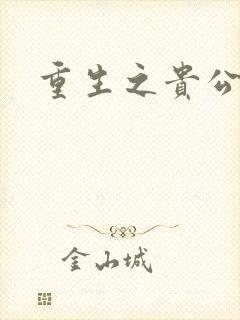 重生之貴公
金山城